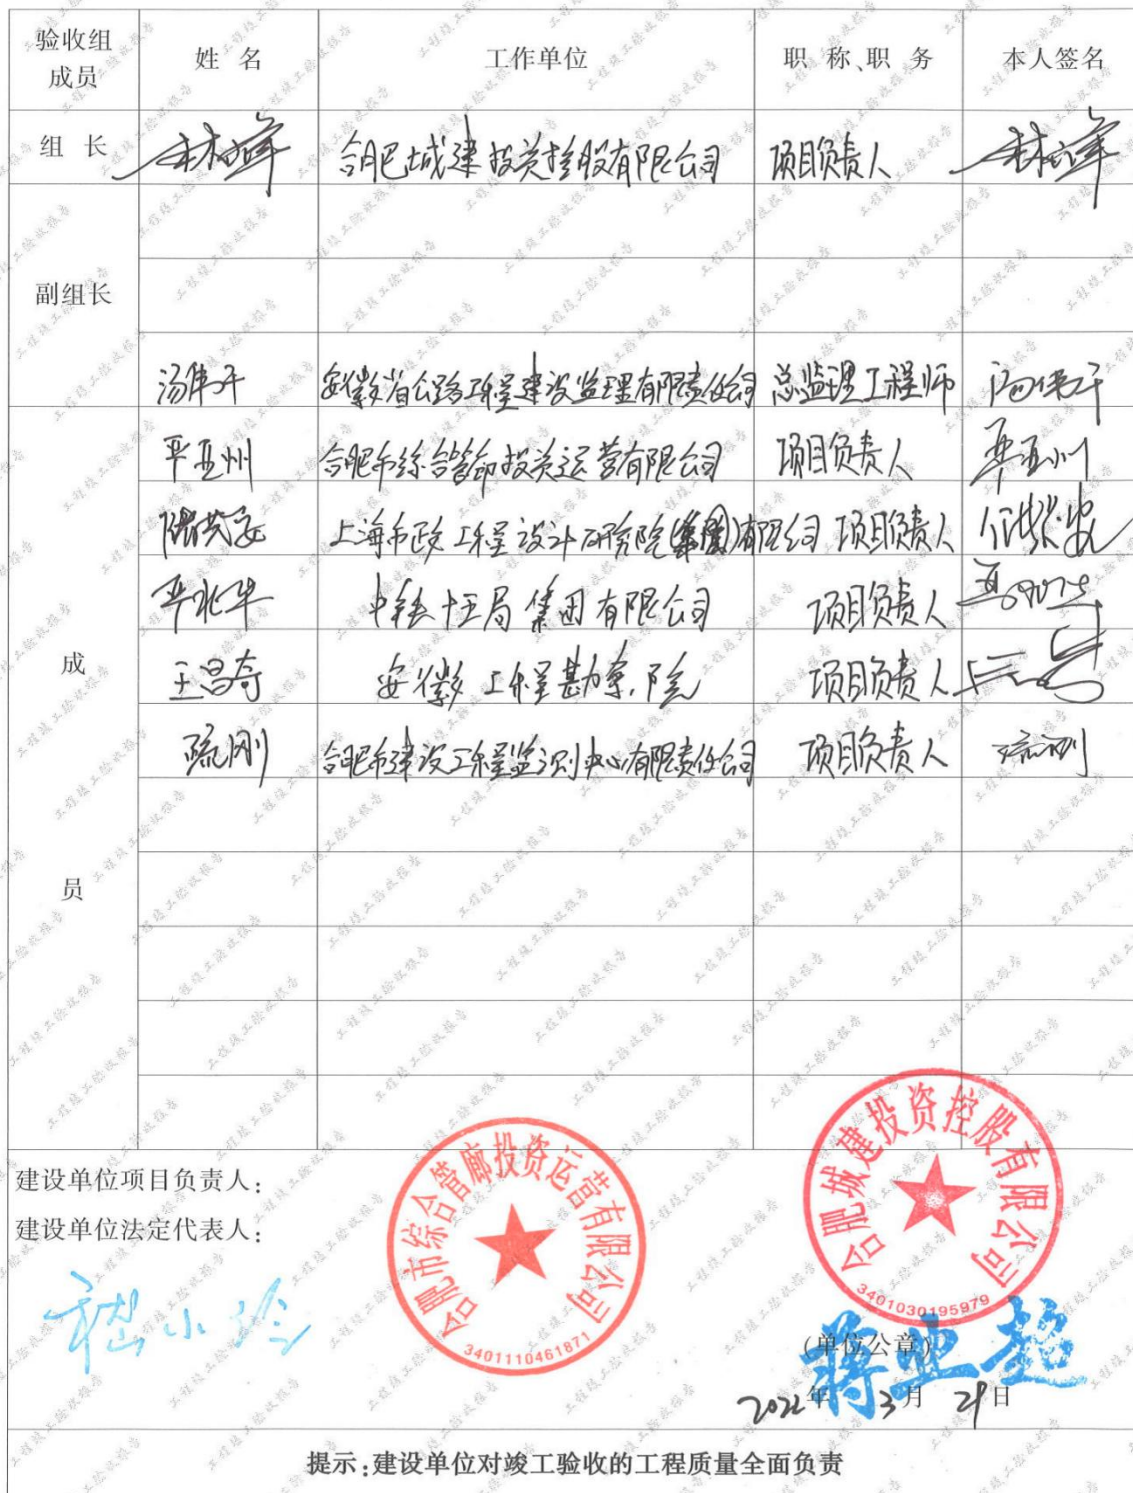 验收组成员 姓 名 工作单位 职 称、职 务 本人签名
组 长 合肥城建投资控股有限公司 项目负责人
副组长
汤伟千 安徽省公路工程建设监理有限责任公司 总监理工程师
平亚州 合肥市综合管廊投资运营有限公司 项目负责人
上海市政工程设计研究院(集团)有限公司 项目负责人
中铁十五局集团有限公司 项目负责人
成
王昌奇 安徽工程勘察院 项目负责人
疏刚 合肥市建设工程监测中心有限责任公司 项目负责人 疏刚
员
建设单位项目负责人:
建设单位法定代表人:
合肥市综合管廊投资运营有限公司
3401110461871
合肥城建投资控股有限公司
3401030195979
(单位公章)
蒋业超
2022年3月29日
提示:建设单位对竣工验收的工程质量全面负责
工程竣工验收报告